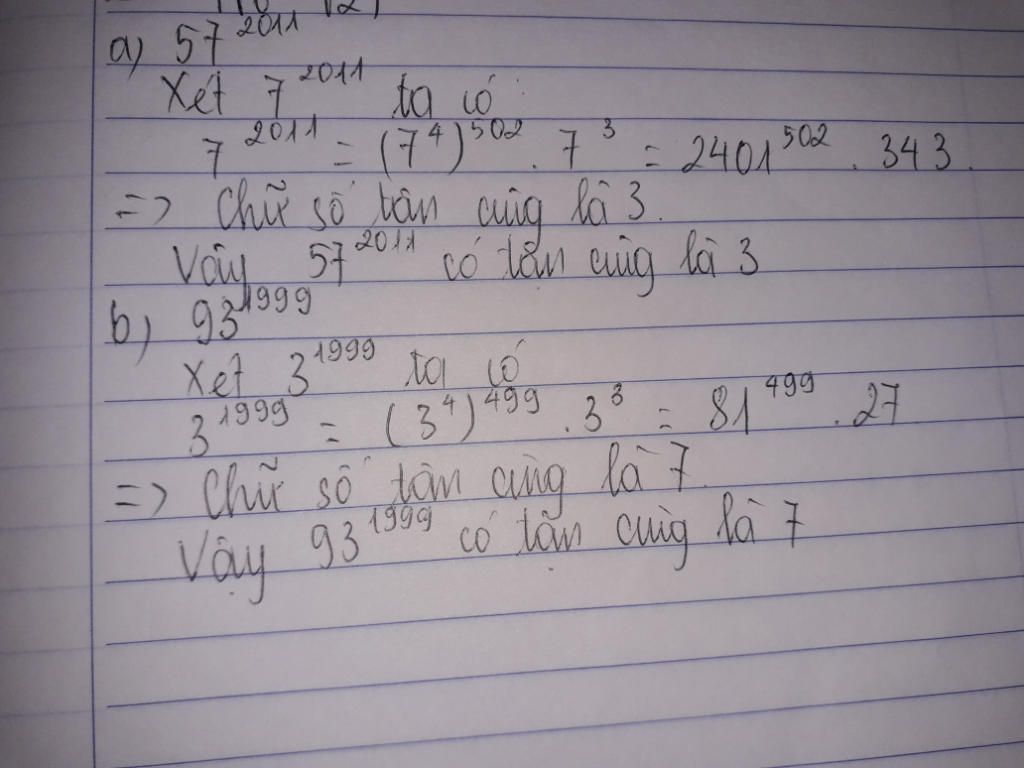 a) 57^2011
Xét 7^2011 ta có
7^2011 = (7^4)^502 . 7^3 = 2401^502 . 343.
=> Chữ số tận cùng là 3.
Vậy 57^2011 có tận cùng là 3
b) 93^1999
Xét 3^1999 ta có
3^1999 = (3^4)^499 . 3^3 = 81^499 . 27
=> Chữ số tận cùng là 7
Vậy 93^1999 có tận cùng là 7